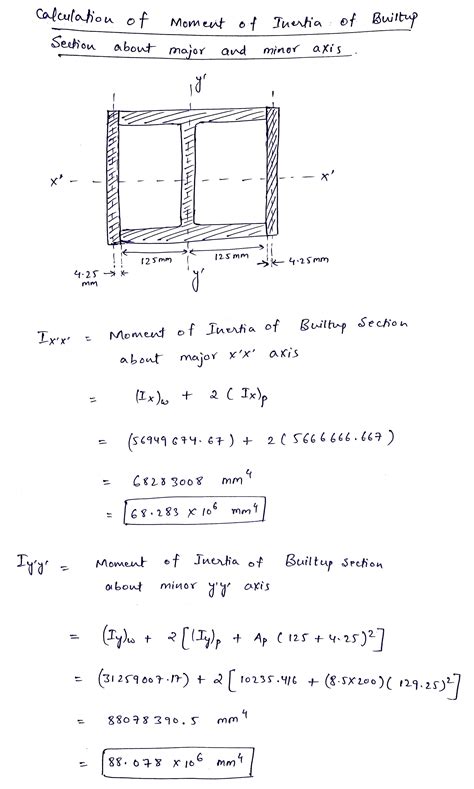 Calculation of Moment of Inertia of Builtup
Section about major and minor axis.
y'
x' x'
125mm 125mm
4.25 mm 4.25mm
y'
Ix'x' = Moment of Inertia of Builtup Section
about major x'x' axis
= (Ix)w + 2 (Ix)p
= (56949674.67) + 2(5666666.667)
= 68283008 mm⁴
= 68.283 × 10⁶ mm⁴
Iy'y' = Moment of Inertia of Builtup Section
about minor y'y' axis
= (Iy)w + 2[(Iy)p + Ap (125 + 4.25)²]
= (31259007.17) + 2[10235.416 + (8.5×200)(129.25)²]
= 88078390.5 mm⁴
= 88.078 × 10⁶ mm⁴